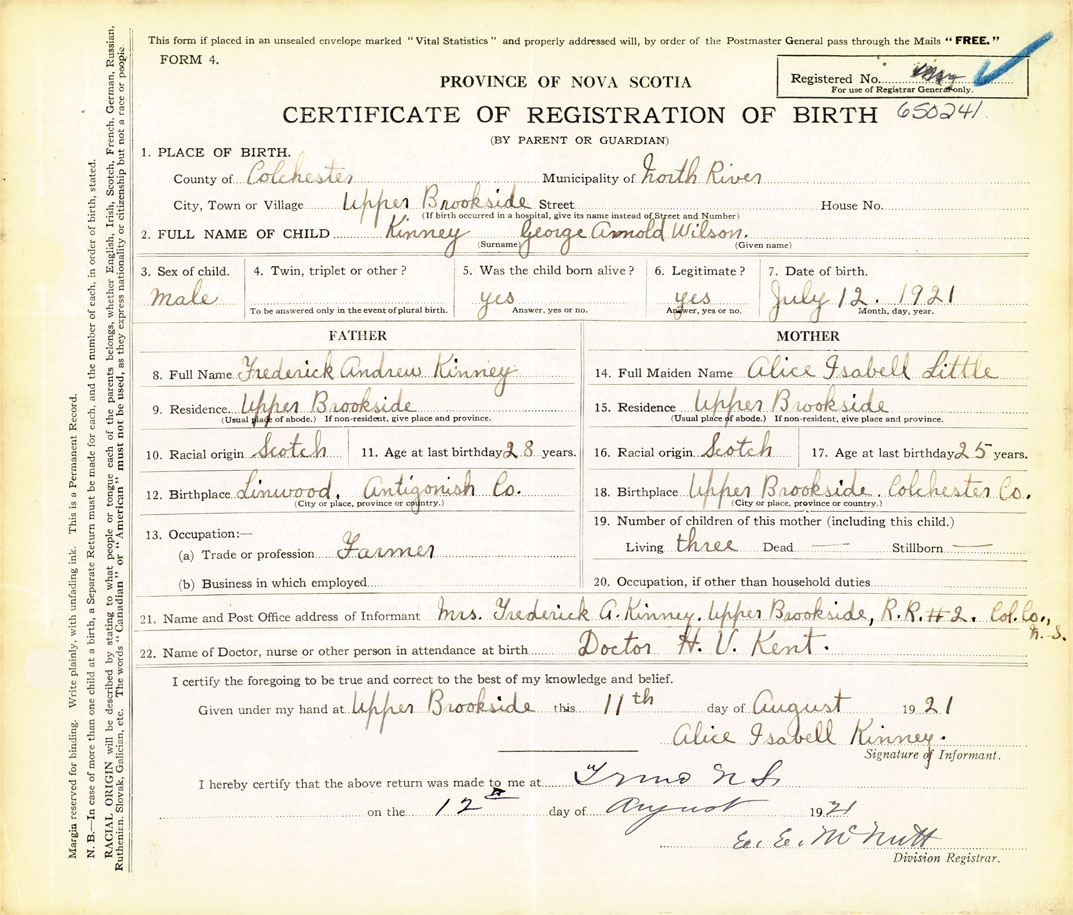 This form if placed in an unsealed envelope marked "Vital Statistics" and properly addressed will, by order of the Postmaster General pass through the Mails "FREE."
FORM 4.
Registered No.
For use of Registrar General only.
PROVINCE OF NOVA SCOTIA
CERTIFICATE OF REGISTRATION OF BIRTH 650241
(BY PARENT OR GUARDIAN)
1. PLACE OF BIRTH.
County of Colchester Municipality of North River
City, Town or Village Upper Brookside Street House No.
(If birth occurred in a hospital, give its name instead of Street and Number)
2. FULL NAME OF CHILD Kinney George Arnold Wilson.
(Surname) (Given name)
3. Sex of child. 4. Twin, triplet or other? 5. Was the child born alive? 6. Legitimate? 7. Date of birth.
male yes yes July 12. 1921
To be answered only in the event of plural birth. Answer, yes or no. Answer, yes or no. Month, day, year.
FATHER
8. Full Name Frederick Andrew Kinney
9. Residence Upper Brookside
(Usual place of abode.) If non-resident, give place and province.
10. Racial origin Scotch 11. Age at last birthday 28 years.
12. Birthplace Linwood, Antigonish Co.
(City or place, province or country.)
13. Occupation:—
(a) Trade or profession Farmer
(b) Business in which employed
MOTHER
14. Full Maiden Name Alice Isabell Little
15. Residence Upper Brookside
(Usual place of abode.) If non-resident, give place and province.
16. Racial origin Scotch 17. Age at last birthday 25 years.
18. Birthplace Upper Brookside. Colchester Co.
(City or place, province or country.)
19. Number of children of this mother (including this child.)
Living three Dead — Stillborn —
20. Occupation, if other than household duties
21. Name and Post Office address of Informant Mrs. Frederick A. Kinney. Upper Brookside, R.R. # 2. Col. Co.,
N.S.
22. Name of Doctor, nurse or other person in attendance at birth Doctor H. V. Kent.
I certify the foregoing to be true and correct to the best of my knowledge and belief.
Given under my hand at Upper Brookside this 11th day of August 1921
Alice Isabell Kinney.
Signature of Informant.
I hereby certify that the above return was made to me at Truro N S
on the 12th day of August 1921
E. E. McNutt
Division Registrar.
Margin reserved for binding. Write plainly, with unfading ink. This is a Permanent Record.
N. B.—In case of more than one child at a birth, a Separate Return must be made for each, and the number of each, in order of birth, stated.
RACIAL ORIGIN will be described by stating to what people or tongue each of the parents belongs, whether English, Irish, Scotch, French, German, Russian,
Ruthenian, Slovak, Galician, etc. The words "Canadian" or "American" must not be used, as they express nationality or citizenship but not a race or people.